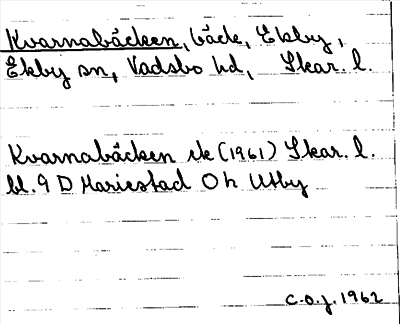 Kvarnabäcken, bäck, Ekby,
Ekby sn, Vadsbo hd, Skar. l.
Kvarnabäcken ek (1961) Skar. l.
bl. 9 D Mariestad O h Utby
C.O.J. 1962